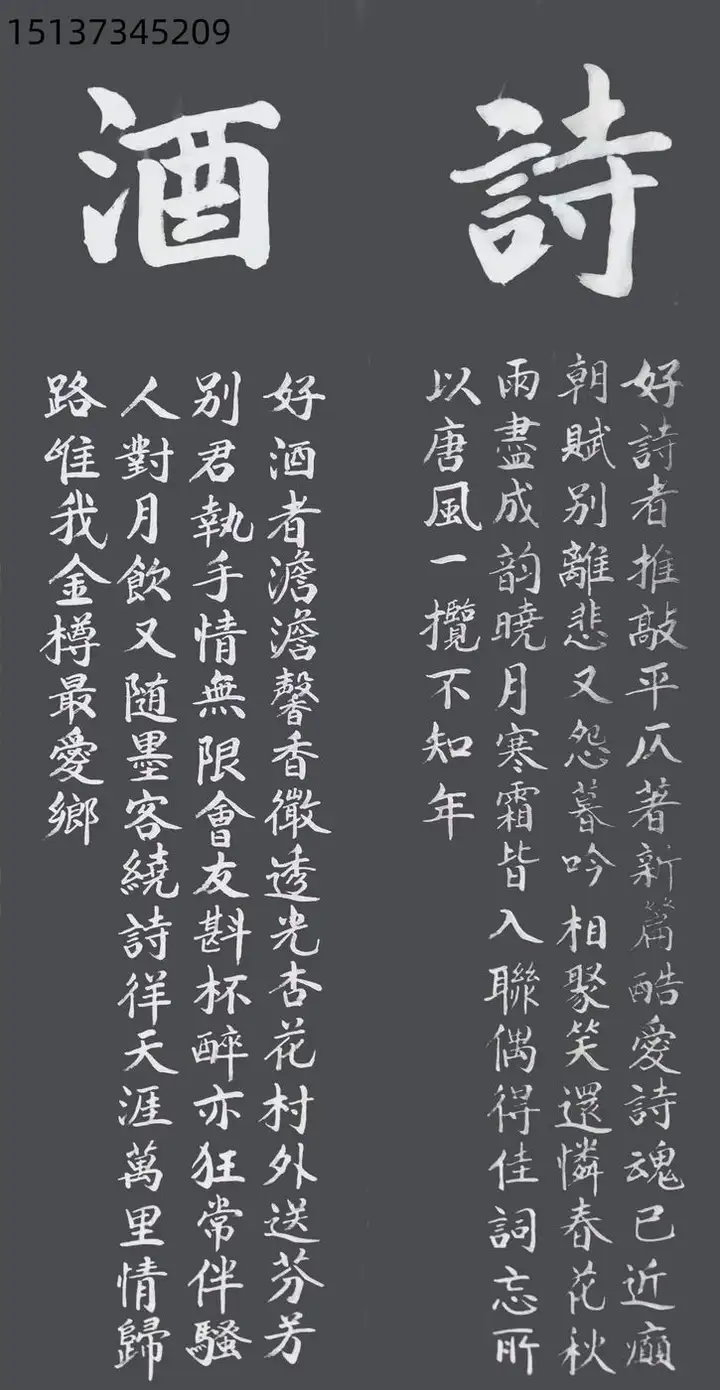 15137345209
詩
好詩者推敲平仄著新篇酷愛詩魂已近癲
朝賦別離悲又怨暮吟相聚笑還憐春花秋
雨盡成韵曉月寒霜皆入聯偶得佳詞忘所
以唐風一攬不知年
酒
好酒者澹澹馨香徽透光杏花村外送芬芳
別君執手情無限會友斟杯醉亦狂常伴騷
人對月飲又随墨客繞詩徉天涯萬里情歸
路唯我金樽最愛鄉